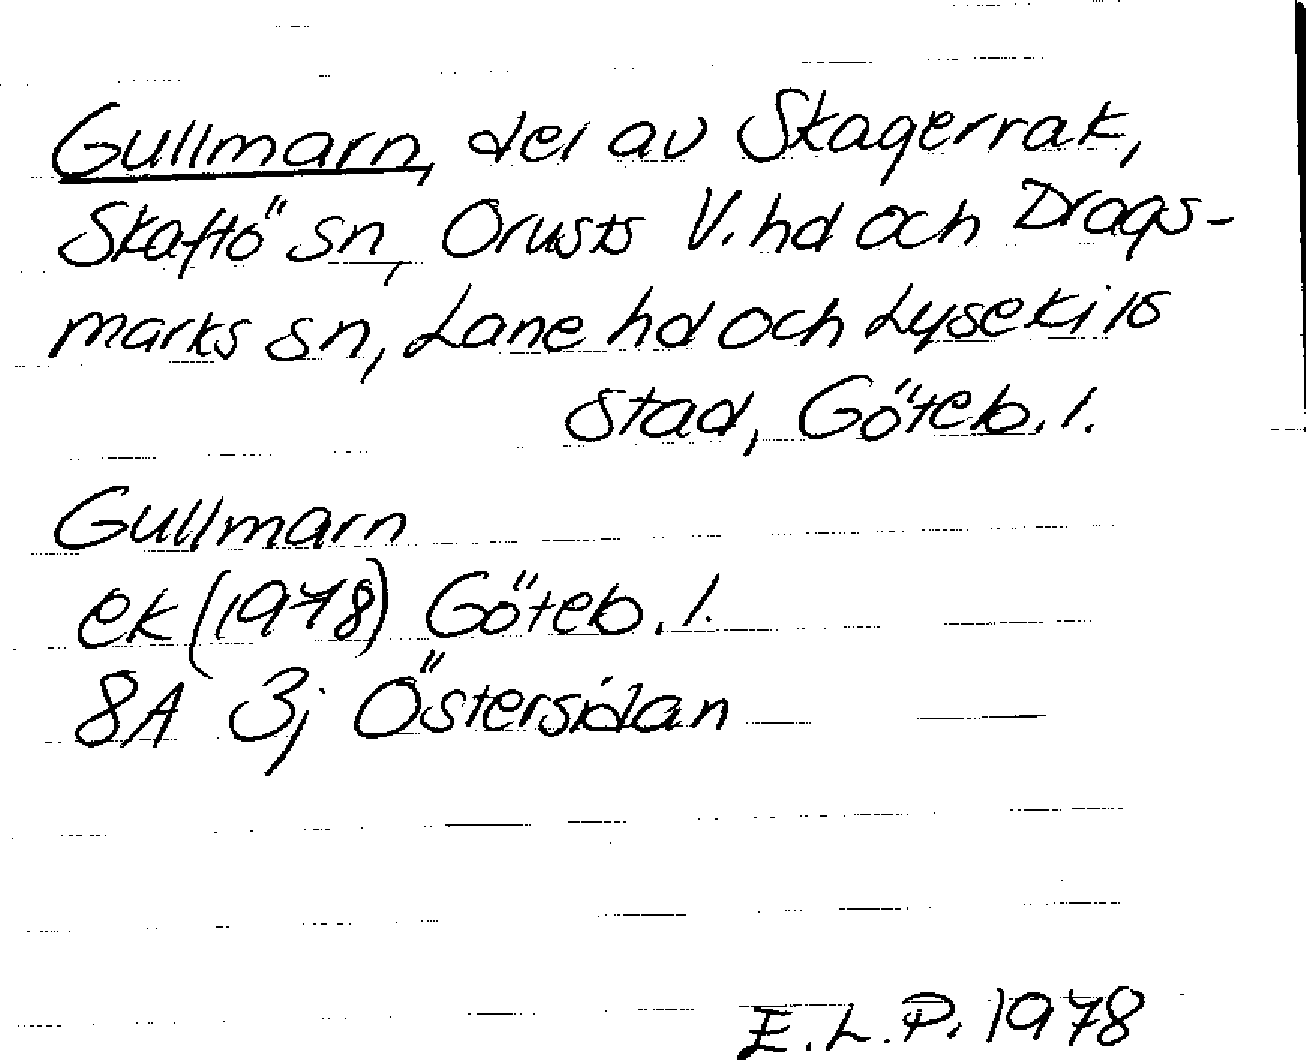 Gullmarn, del av Skagerrak,
Skaftö sn, Orusts V. hd och Drags-
marks sn, Lane hd och Lysekils
stad, Göteb. l.
Gullmarn
ek (1978) Göteb. l.
8A 3j Östersidan
E. L. P. 1978